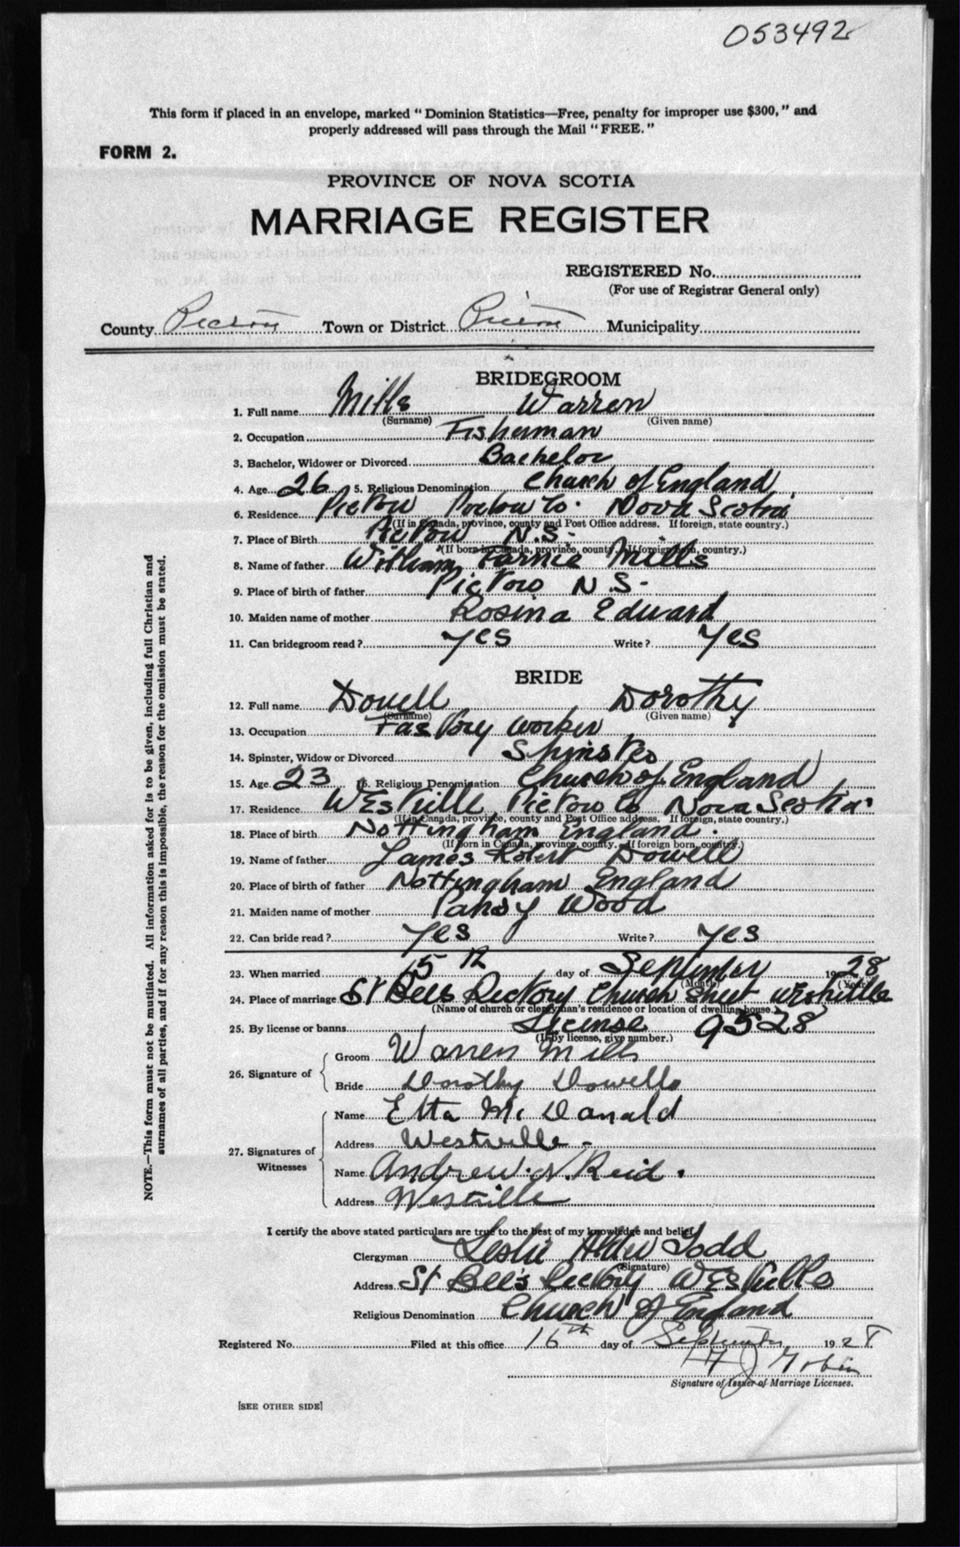 053492
This form if placed in an envelope, marked "Dominion Statistics—Free, penalty for improper use $300," and
properly addressed will pass through the Mail "FREE."
FORM 2.
PROVINCE OF NOVA SCOTIA
MARRIAGE REGISTER
REGISTERED No.
(For use of Registrar General only)
County Pictou Town or District Pictou Municipality
BRIDEGROOM
1. Full name Mills Warren
(Surname) (Given name)
2. Occupation Fisherman
3. Bachelor, Widower or Divorced Bachelor
4. Age 26 5. Religious Denomination Church of England
6. Residence Pictou Pictou Co. Nova Scotia
(If in Canada, province, county and Post Office address. If foreign, state country.)
7. Place of Birth Pictou N.S.
(If born in Canada, province, county. If foreign born, country.)
8. Name of father William Mills
9. Place of birth of father Pictou N S.
10. Maiden name of mother Rosina Edward
11. Can bridegroom read? Yes Write? Yes
BRIDE
12. Full name Dowell Dorothy
(Surname) (Given name)
13. Occupation Factory worker
14. Spinster, Widow or Divorced Spinster
15. Age 23 16. Religious Denomination Church of England
17. Residence Westville Pictou Co Nova Scotia
(If in Canada, province, county and Post Office address. If foreign, state country.)
18. Place of birth Nottingham England.
(If born in Canada, province, county. If foreign born, country.)
19. Name of father James Robert Dowell
20. Place of birth of father Nottingham England
21. Maiden name of mother Pansy Wood
22. Can bride read? Yes Write? Yes
23. When married 15th day of September 1928
(Month) (Year)
24. Place of marriage St Bees Rectory Church Street Westville
(Name of church or clergyman's residence or location of dwelling house.)
25. By license or banns License 9528
(If by license, give number.)
26. Signature of
Groom Warren Mills
Bride Dorothy Dowell
27. Signatures of Witnesses
Name Etta McDonald
Address Westville-
Name Andrew N. Reid.
Address Westville
I certify the above stated particulars are true to the best of my knowledge and belief
Clergyman Leslie Todd
(Signature)
Address St Bee's Rectory Westville
Religious Denomination Church of England
Registered No. Filed at this office 16th day of September 1928
Signature of Issuer of Marriage Licenses.
[SEE OTHER SIDE]
NOTE.—This form must not be mutilated. All information asked for is to be given, including full Christian and
surnames of all parties, and if for any reason this is impossible, the reason for the omission must be stated.